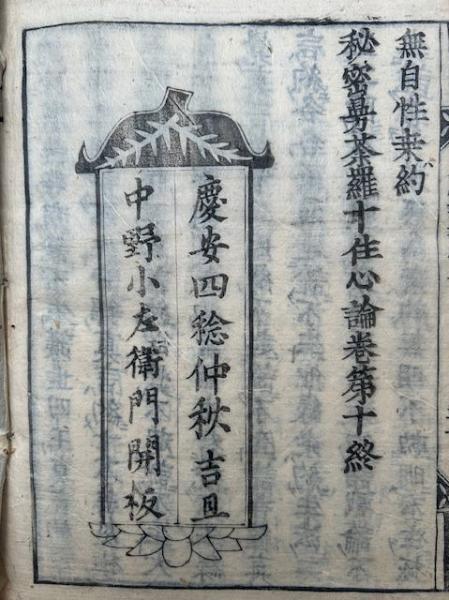 無自性来約
秘密曼荼羅十住心論巻第十終
慶安四稔仲秋吉旦
中野小左衛門開板